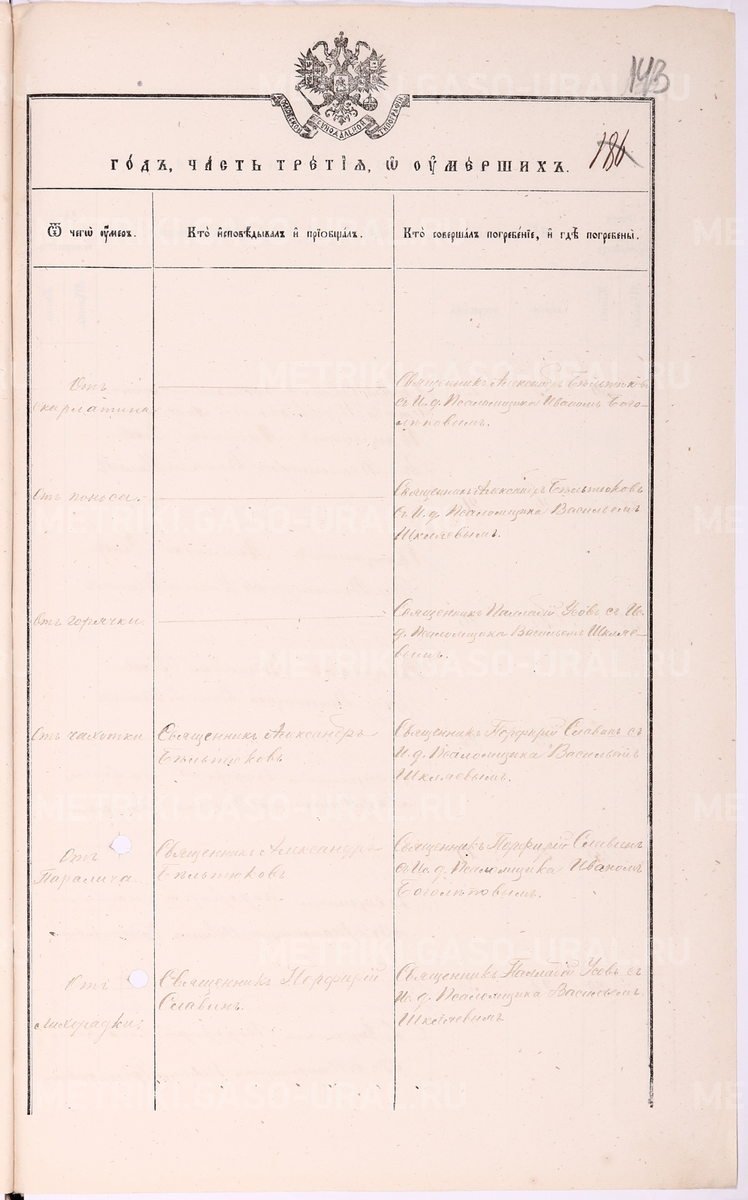 143
МОСКОВСКОЙ СѴНОДАЛЬНОЙ ТИПОГРАФІИ
186
ГОДЪ, ЧАСТЬ ТРЕТІЯ, Ѿ ОУМЕРШИХЪ.
Ѿ чегѡ оумеръ.
Кто исповѣдывалъ и пріобщалъ.
Кто совершалъ погребеніе, и гдѣ погребены.
Отъ
скарлатины
Священникъ Александръ Бѣльтюковъ
съ И. д. Псаломщика Иваномъ Бого-
лѣповымъ.
Отъ поноса.
Священникъ Александръ Бѣльтюковъ
съ И. д. Псаломщика Васильемъ
Шкляевымъ.
Отъ горячки
Священникъ Палладій Усовъ съ И.
д. Псаломщика Васильемъ Шкляе-
вымъ.
Отъ чахотки
Священникъ Александръ
Бѣльтюковъ
Священникъ Порфирій Славинъ съ
И. д. Псаломщика Васильемъ
Шкляевымъ.
Отъ
Паралича
Священникъ Александръ
Бѣльтюковъ
Священникъ Порфирій Славинъ
съ И. д. Псаломщика Иваномъ
Боголѣповымъ.
Отъ
лихорадки.
Священникъ Порфирій
Славинъ.
Священникъ Палладій Усовъ съ
И. д. Псаломщика Васильемъ
Шкляевымъ
METRIKI.GASO-URAL.RU